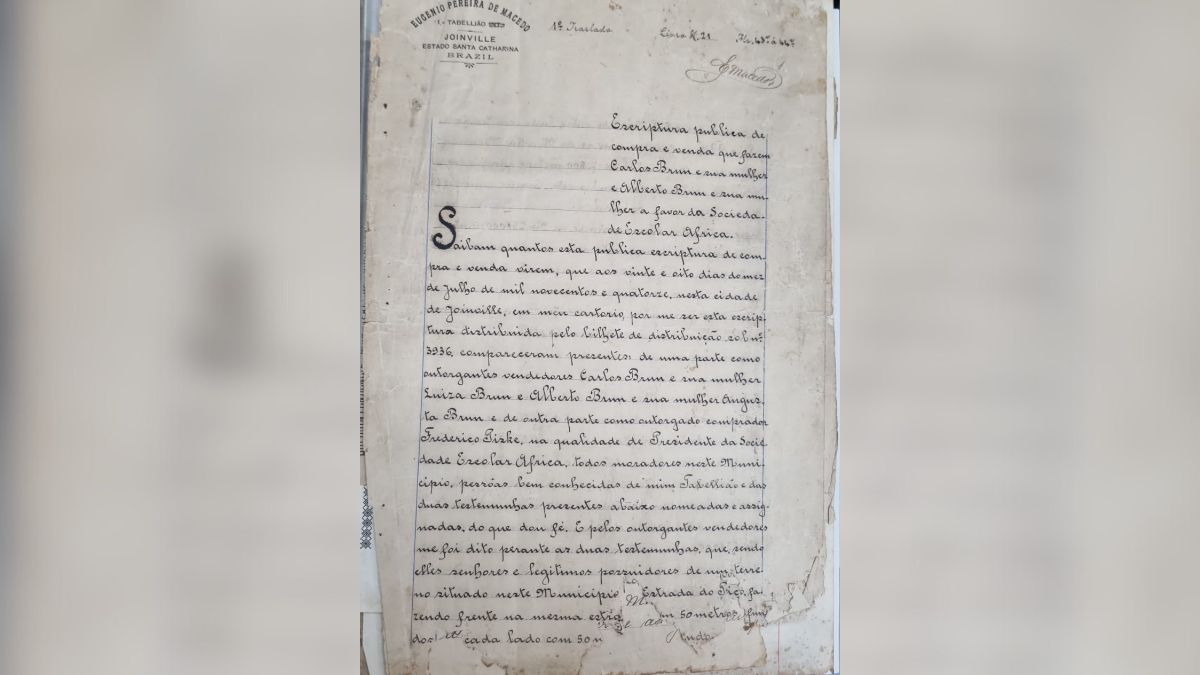 EUGENIO PEREIRA DE MACEDO
1º TABELLIÃO
JOINVILLE
ESTADO SANTA CATHARINA
BRAZIL
1º Traslado Livro N. 21 Fls. 43v a 44v
EMacedo
Escriptura publica de
compra e venda que fazem
Carlos Brun e sua mulher
e Alberto Brun e sua mu-
lher a favor da Socieda-
de Escolar Africa.
Saibam quantos esta publica escriptura de com-
pra e venda virem, que aos vinte e oito dias do mez
de Julho de mil novecentos e quatorze, nesta cidade
de Joinville, em meu cartorio, por me ser esta escrip-
tura distribuida pelo bilhete de distribuição sob nº
3936, compareceram presentes: de uma parte como
outorgantes vendedores Carlos Brun e sua mulher
Luiza Brun e Alberto Brun e sua mulher Augus-
ta Brun e de outra parte como outorgado comprador
Frederico Pizke, na qualidade de Presidente da Socie-
dade Escolar Africa, todos moradores neste Muni-
cipio, pessôas bem conhecidas de mim Tabellião e das
duas testemunhas presentes abaixo nomeadas e assig-
nadas, do que dou fé. E pelos outorgantes vendedores
me foi dito perante as duas testemunhas, que, sendo
elles senhores e legitimos possuidores de um terre-
no situado neste Municipio Estrada do Pico, fa-
zendo frente na mesma 50 metros,
dos cada lado com